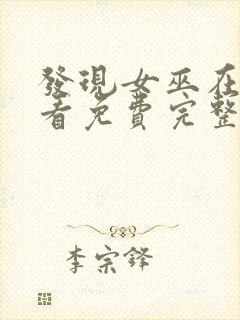 發現女巫在
看免費完整
李宗鋒